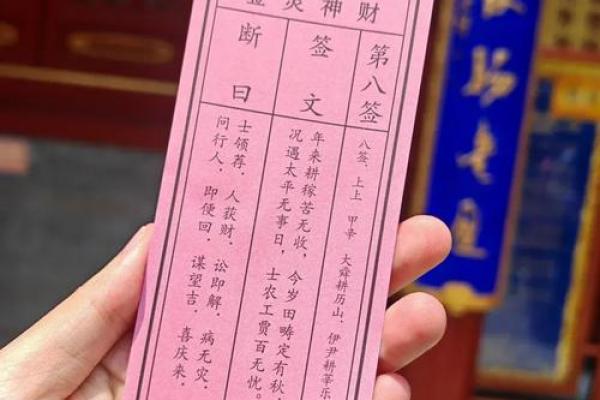 财神灵签
第八签
八签、上上 甲辛 大舜耕历山，伊尹耕莘乐
签文
年来耕稼苦无收，今岁田畴定有秋，
况遇太平无事日，士农工贾百无忧。
断曰
士领荐，人获财，讼即解，病无灾，
问行人，即便回，谋望吉，喜庆来，